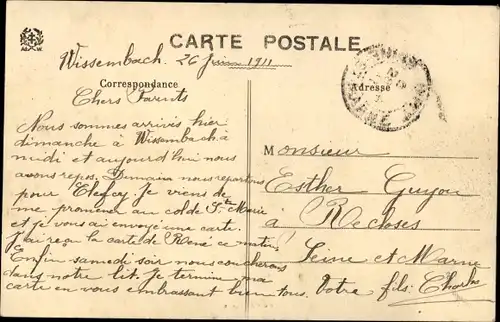 CARTE POSTALE
Wissembach 26 Juin 1911
Correspondance
Adresse
Chers Parents
Nous sommes arrivés hier
dimanche à Wissembach à
midi et aujourd'hui nous
avons repos. Demain nous repartons
pour Je viens de
me promener au col de Ste Marie
et je vous ai envoyé une carte.
J'ai reçu la carte de René ce matin
Enfin samedi soir nous coucherons
dans notre lit. Je termine ma
carte en vous embrassant bien tous. Votre fils Charles
Monsieur
Esther Guyou
à Recloses
Seine et Marne